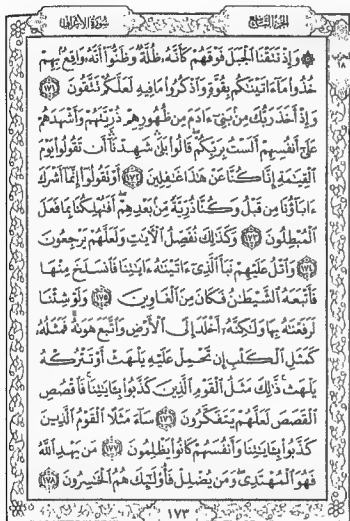 سورة الأعراف
الجزء التاسع
۞ وَإِذْ نَتَقْنَا ٱلْجَبَلَ فَوْقَهُمْ كَأَنَّهُۥ ظُلَّةٌ وَظَنُّوٓا۟ أَنَّهُۥ وَاقِعٌۢ بِهِمْ
خُذُوا۟ مَآ ءَاتَيْنَٰكُم بِقُوَّةٍ وَٱذْكُرُوا۟ مَا فِيهِ لَعَلَّكُمْ تَتَّقُونَ ١٧١
وَإِذْ أَخَذَ رَبُّكَ مِنۢ بَنِىٓ ءَادَمَ مِن ظُهُورِهِمْ ذُرِّيَّتَهُمْ وَأَشْهَدَهُمْ
عَلَىٰٓ أَنفُسِهِمْ أَلَسْتُ بِرَبِّكُمْ ۖ قَالُوا۟ بَلَىٰ ۛ شَهِدْنَآ ۛ أَن تَقُولُوا۟ يَوْمَ
ٱلْقِيَٰمَةِ إِنَّا كُنَّا عَنْ هَٰذَا غَٰفِلِينَ ١٧٢ أَوْ تَقُولُوٓا۟ إِنَّمَآ أَشْرَكَ
ءَابَآؤُنَا مِن قَبْلُ وَكُنَّا ذُرِّيَّةً مِّنۢ بَعْدِهِمْ ۖ أَفَتُهْلِكُنَا بِمَا فَعَلَ
ٱلْمُبْطِلُونَ ١٧٣ وَكَذَٰلِكَ نُفَصِّلُ ٱلْءَايَٰتِ وَلَعَلَّهُمْ يَرْجِعُونَ
١٧٤ وَٱتْلُ عَلَيْهِمْ نَبَأَ ٱلَّذِىٓ ءَاتَيْنَٰهُ ءَايَٰتِنَا فَٱنسَلَخَ مِنْهَا
فَأَتْبَعَهُ ٱلشَّيْطَٰنُ فَكَانَ مِنَ ٱلْغَاوِينَ ١٧٥ وَلَوْ شِئْنَا
لَرَفَعْنَٰهُ بِهَا وَلَٰكِنَّهُۥٓ أَخْلَدَ إِلَى ٱلْأَرْضِ وَٱتَّبَعَ هَوَىٰهُ ۚ فَمَثَلُهُۥ
كَمَثَلِ ٱلْكَلْبِ إِن تَحْمِلْ عَلَيْهِ يَلْهَثْ أَوْ تَتْرُكْهُ
يَلْهَث ۚ ذَّٰلِكَ مَثَلُ ٱلْقَوْمِ ٱلَّذِينَ كَذَّبُوا۟ بِـَٔايَٰتِنَا ۚ فَٱقْصُصِ
ٱلْقَصَصَ لَعَلَّهُمْ يَتَفَكَّرُونَ ١٧٦ سَآءَ مَثَلًا ٱلْقَوْمُ ٱلَّذِينَ
كَذَّبُوا۟ بِـَٔايَٰتِنَا وَأَنفُسَهُمْ كَانُوا۟ يَظْلِمُونَ ١٧٧ مَن يَهْدِ ٱللَّهُ
فَهُوَ ٱلْمُهْتَدِى ۖ وَمَن يُضْلِلْ فَأُو۟لَٰٓئِكَ هُمُ ٱلْخَٰسِرُونَ ١٧٨
١٧٣